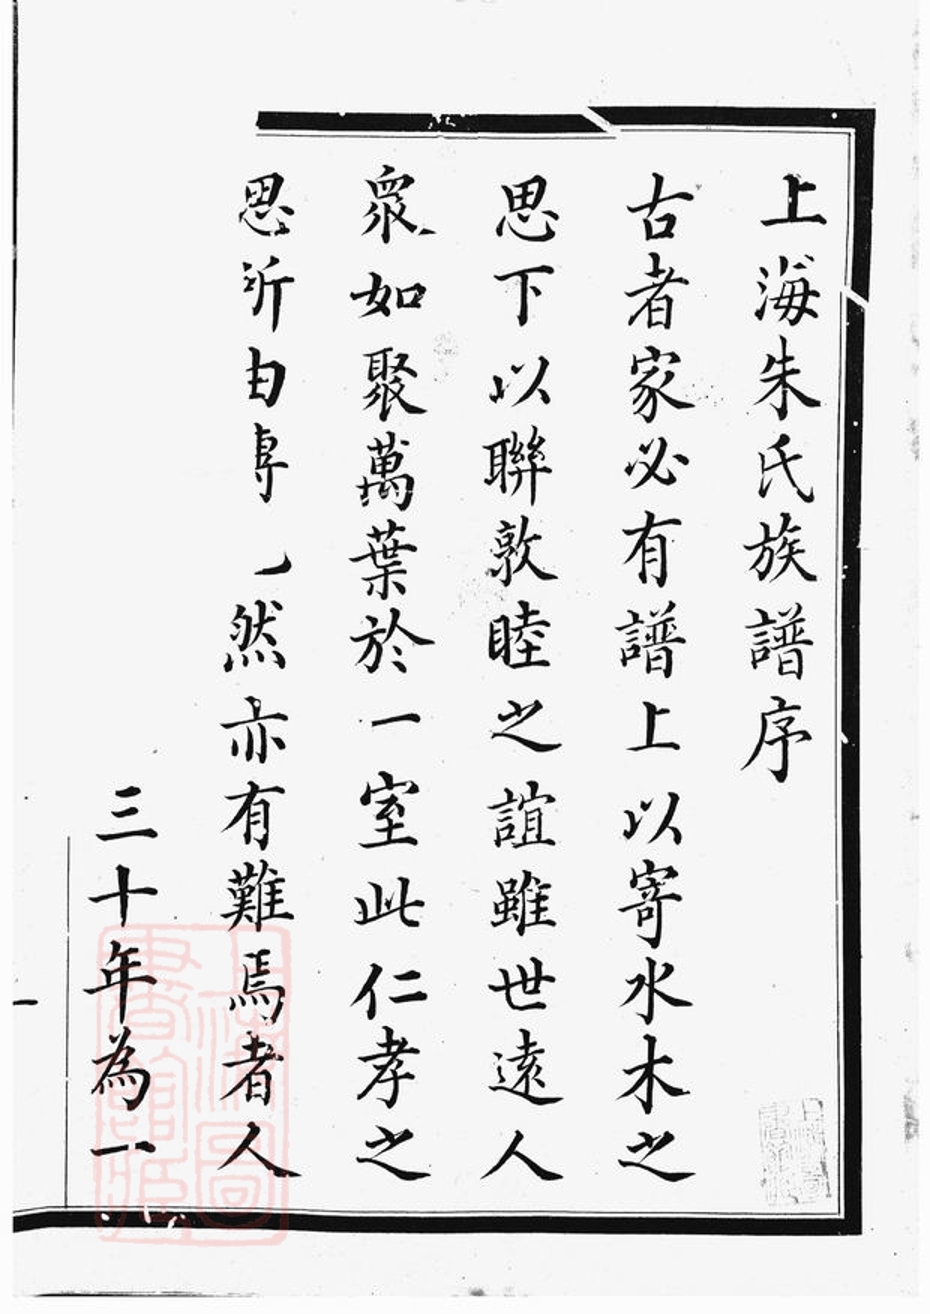 上海朱氏族譜序
古者家必有譜上以寄水木之
思下以聯敦睦之誼雖世遠人
衆如聚萬葉於一室此仁孝之
思所自専 然亦有難焉者人
三十年為一
上海圖書館藏